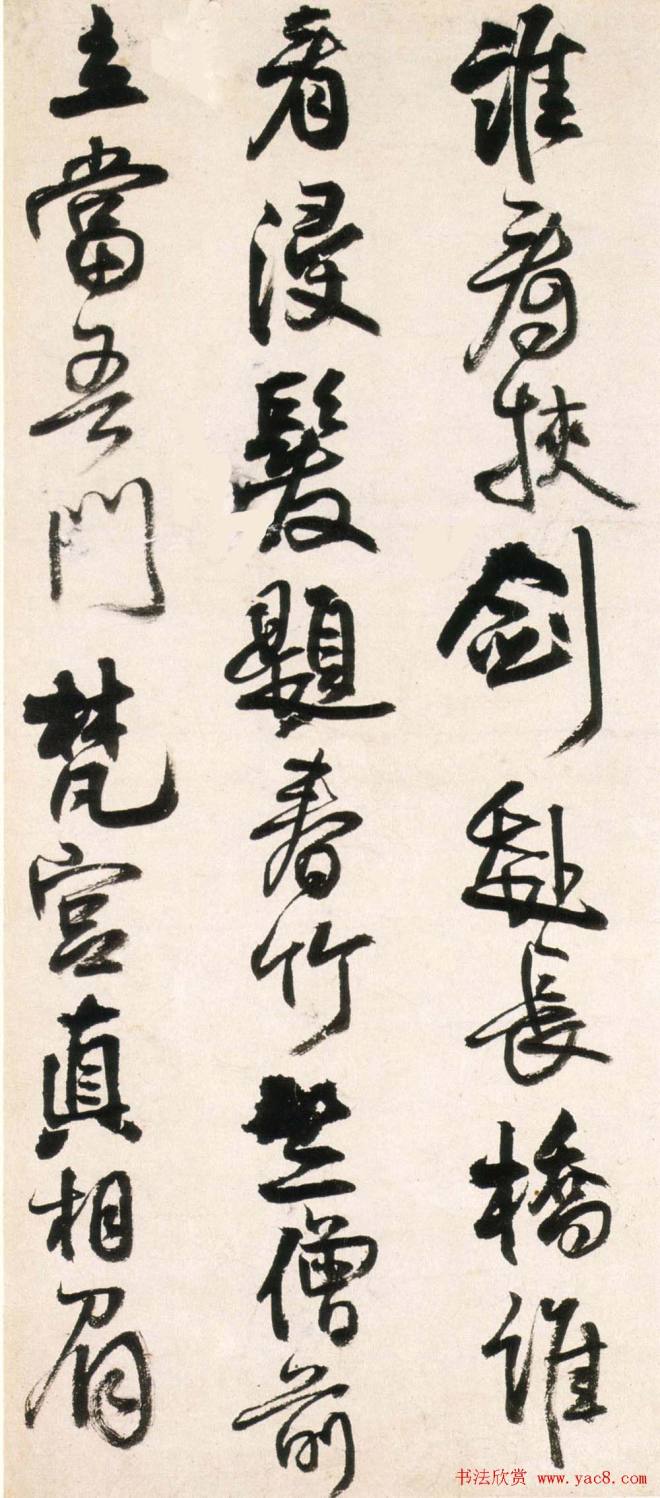 誰看挾劍赴長橋誰
看浸髮題春竹竺僧前
立當吾門梵宮真相眉
书法欣赏 www.yac8.com